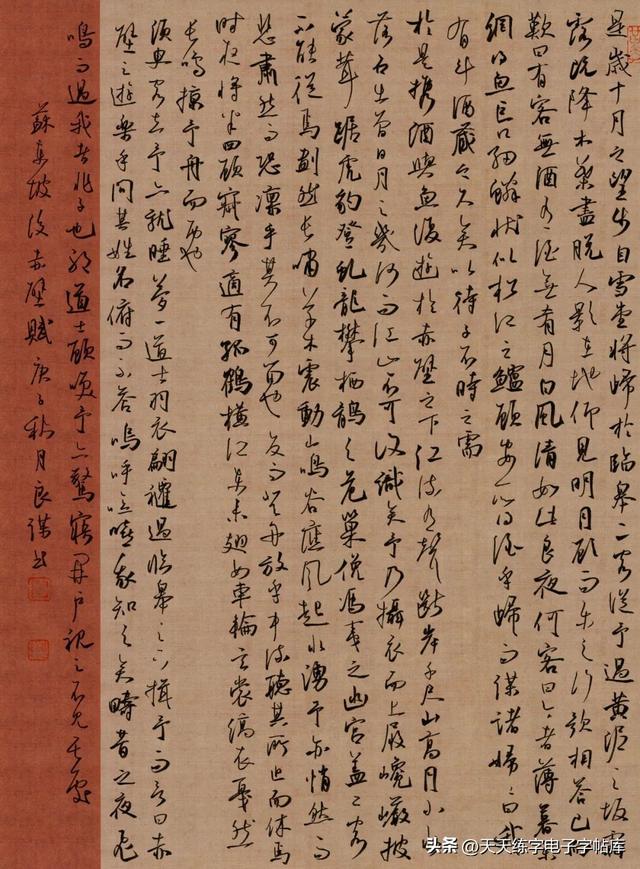 是歲十月之望步自雪堂將歸於臨皋二客從予過黃泥之坂霜
露既降木葉盡脫人影在地仰見明月顧而樂之行歌相答已而
歎曰有客無酒有酒無肴月白風清如此良夜何客曰今者薄暮舉
網得魚巨口細鱗狀似松江之鱸顧安所得酒乎歸而謀諸婦婦曰我
有斗酒藏之久矣以待子不時之需
於是攜酒與魚復遊於赤壁之下江流有聲斷岸千尺山高月小水
落石出曾日月之幾何而江山不可復識矣予乃攝衣而上履巉巖披
蒙茸踞虎豹登虬龍攀栖鶻之危巢俯馮夷之幽宮蓋二客
不能從焉劃然長嘯草木震動山鳴谷應風起水湧予亦悄然而
悲肅然而恐凜乎其不可留也反而登舟放乎中流聽其所止而休焉
時夜將半四顧寂寥適有孤鶴橫江東來翅如車輪玄裳縞衣戛然
長鳴掠予舟而西也
須臾客去予亦就睡夢一道士羽衣翩躚過臨皋之下揖予而言曰赤
壁之遊樂乎問其姓名俯而不答嗚呼噫嘻我知之矣疇昔之夜飛
鳴而過我者非子也耶道士顧笑予亦驚寤開戶視之不見其處
蘇東坡後赤壁賦庚子秋月良謀書
头条 @天天练字电子字帖库